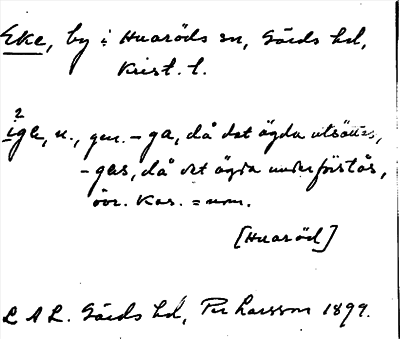 Eke, by i Huaröds sn, Gärds hd,
Krist. l.
2
ige, n., gen. -ga, då det ägda utsättes,
-gas, då det ägda underförstås,
övr. kas. = nom.
[Huaröd]
L A L. Gärds hd, Per Larsson 1899.